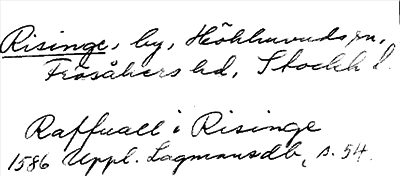 Risinge, by, Hökhuvuds sn,
Frösåkers hd, Stockh l.
Raffuall i Risinge
1586 Uppl. Lagmansdb, s. 54.